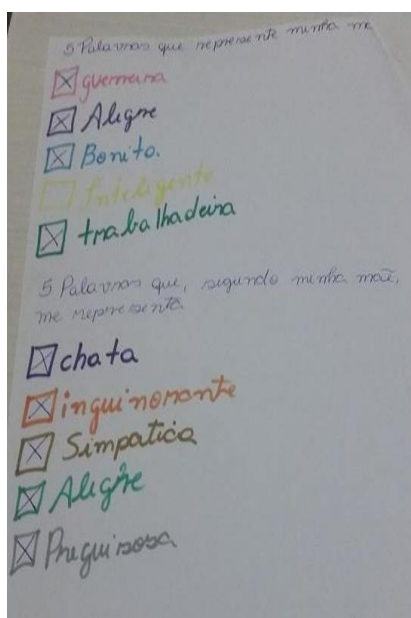 5 Palavras que represente minha me
guerreira
Alegre
Bonito.
Inteligente
trabalhadeira
5 Palavras que, segundo minha mãe,
me representa.
chata
inguinorante
Simpatica
Alegre
Preguisosa